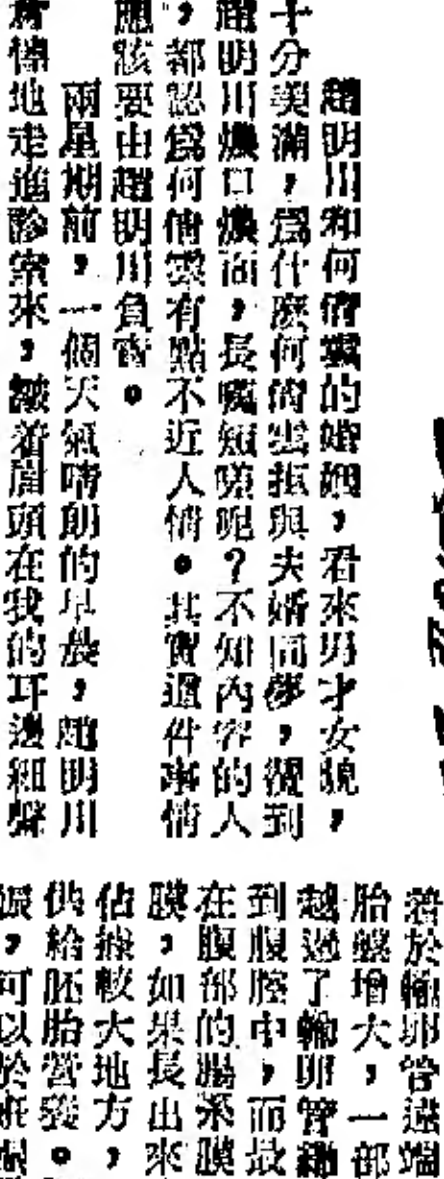 趙明川和何倩雲的婚姻，看來男才女貌，
十分美滿，爲什麽何倩雲拒與夫婿同夢， 
趙明川燥口燥面，長嘴短嘆呢？不知內容的人
，都認爲何倩雲有點不近人情。其實這件事情
應該要由趙明川負責。
兩星期前，一個天氣晴朗的早晨，趙明川
地走進診室來，皺着眉頭在我的耳邊細聲
着於輸卵管遠端
胎盤增大，一部
越過了輸卵管
到腹腔中，而最
在腹部的腸系膜
膜，如果長出來
佔據較大地方，
供給胚胎營養。
，可以於